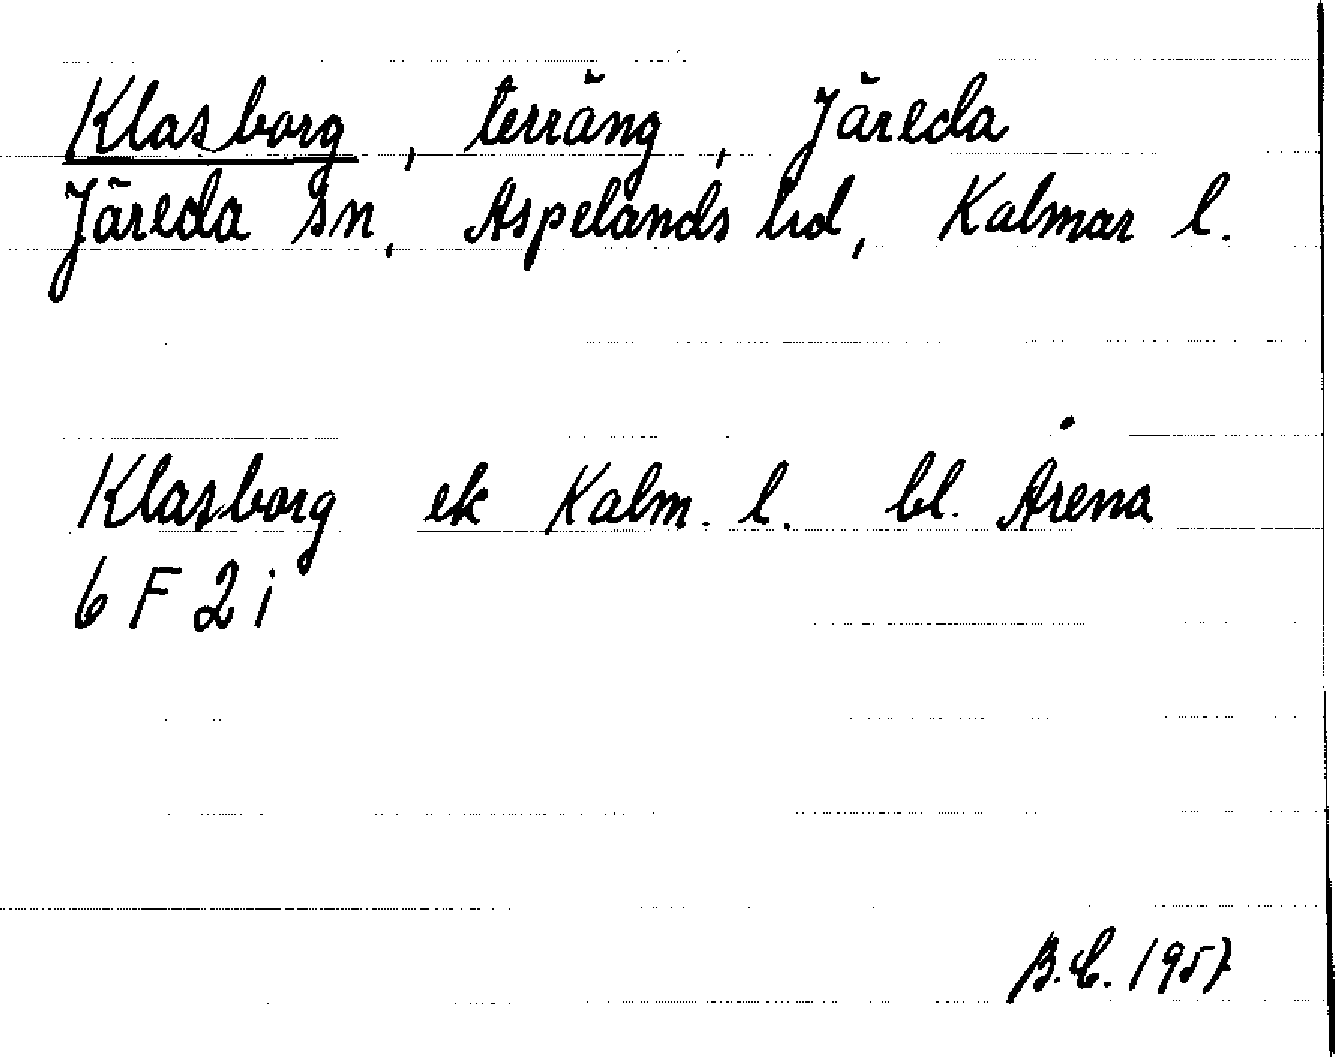 Klasborg, terräng, Järeda
Järeda sn, Aspelands hd, Kalmar l.
Klasborg ek Kalm. l. bl. Årena
6 F 2 i
B.C. 1957